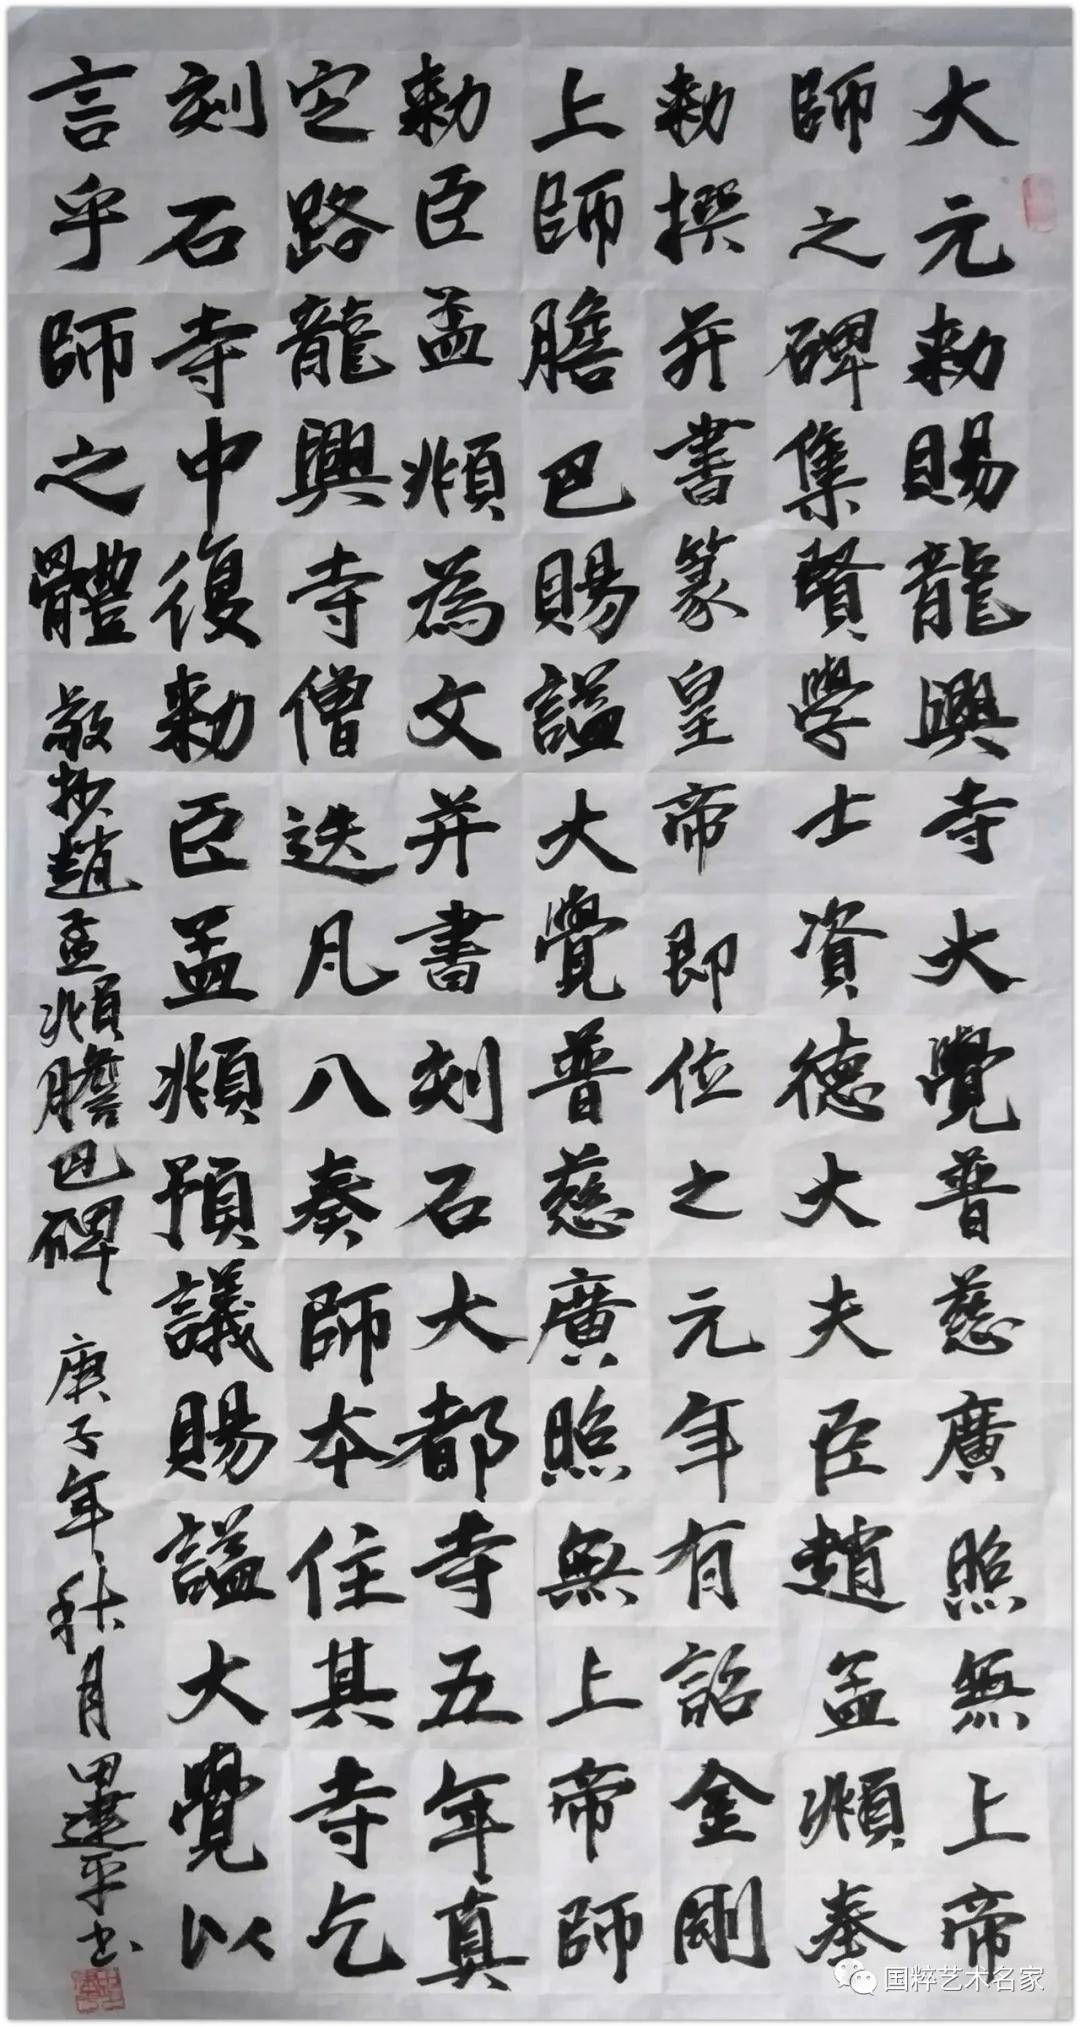 大元勑賜龍興寺大覺普慈廣照無上帝
師之碑集賢學士資德大夫臣趙孟頫奉
勑撰并書篆皇帝即位之元年有詔金剛
上師膽巴賜謚大覺普慈廣照無上帝師
勑臣孟頫為文并書刻石大都寺五年真
定路龍興寺僧迭凡八奏師本住其寺乞
刻石寺中復勑臣孟頫預議賜謚大覺以
言乎師之體
敬抄趙孟頫膽巴碑 庚子年秋月田建平书
国粹艺术名家